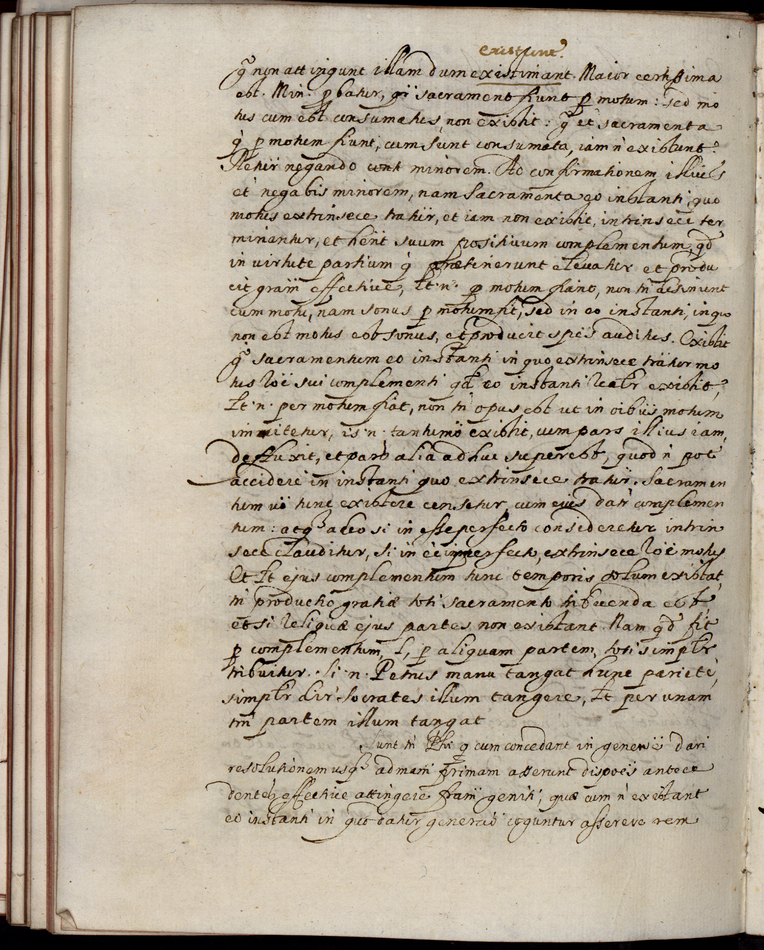 existunt.
q̃ non attingunt illam dum existimant. Maior certissima
est. Min. p̲batur, q̃ sacramenta fiunt p̲ motum: sed mo
tus cum est consumatus non existit: q̃ et sacramenta
q̃ p̲ motum fiunt, cum sunt consumata, iam ñ existunt.
negando minorem. Ad confirmationem
et negabis minorem, nam sacramenta eo instanti, quo
motus extrinsece, et iam non existit, intrinsece ter
minantur, et hẽnt suum positivum complementum, qđ
in virtute partium q̃ elevatur et produ
cit gratiã effective, lt. n. p̲ motum fiant, non tñ desinunt
cum motu, nam sonus p̲ motum fit, sed in eo instanti, in quo
non est motus est sonus, et producit auditus. Existit
q̃ sacramentum eo instanti in quo extrinsece mo
tus sui complementi qđ eo instanti existit,
lt. n. per motum fiat, non tñ opus est ut in oibus motum
imitetur, is. n. existit, cum pars illius iam
defluxit, et pars alia adhuc superest, quod ñ pot
accidere in instanti quo extrinsece. Sacramen
tum vo tunc existere censetur, cum ejus datr complemen
tum: atq̃ adeo si in esse perfecto consideretur intrin
sece clauditur, si in imperfecto, extrinsece motus
Et lt ejus complementum tunc temporis solum existat,
tñ productio gratiæ toti sacramento tribuenda est
etsi reliquæ ejus partes non existant. Nam qđ fit
p̲ complementum, l, p̲ aliquam partem, toti simplr
tribuitur. Si. n. Petrus manu tangat hunc parietẽ,
simplr dir Socrates illum tangere, lt per unam
tñ partem illum tangat
Sunt tñ q̃ cum concedant in dari
resolutionem usq̃ ad mam primam asserunt dispoẽs antece
dentes effective attingere geniti, quæ cum ñ existant
eo instanti in quo datur coguntur asserere rem